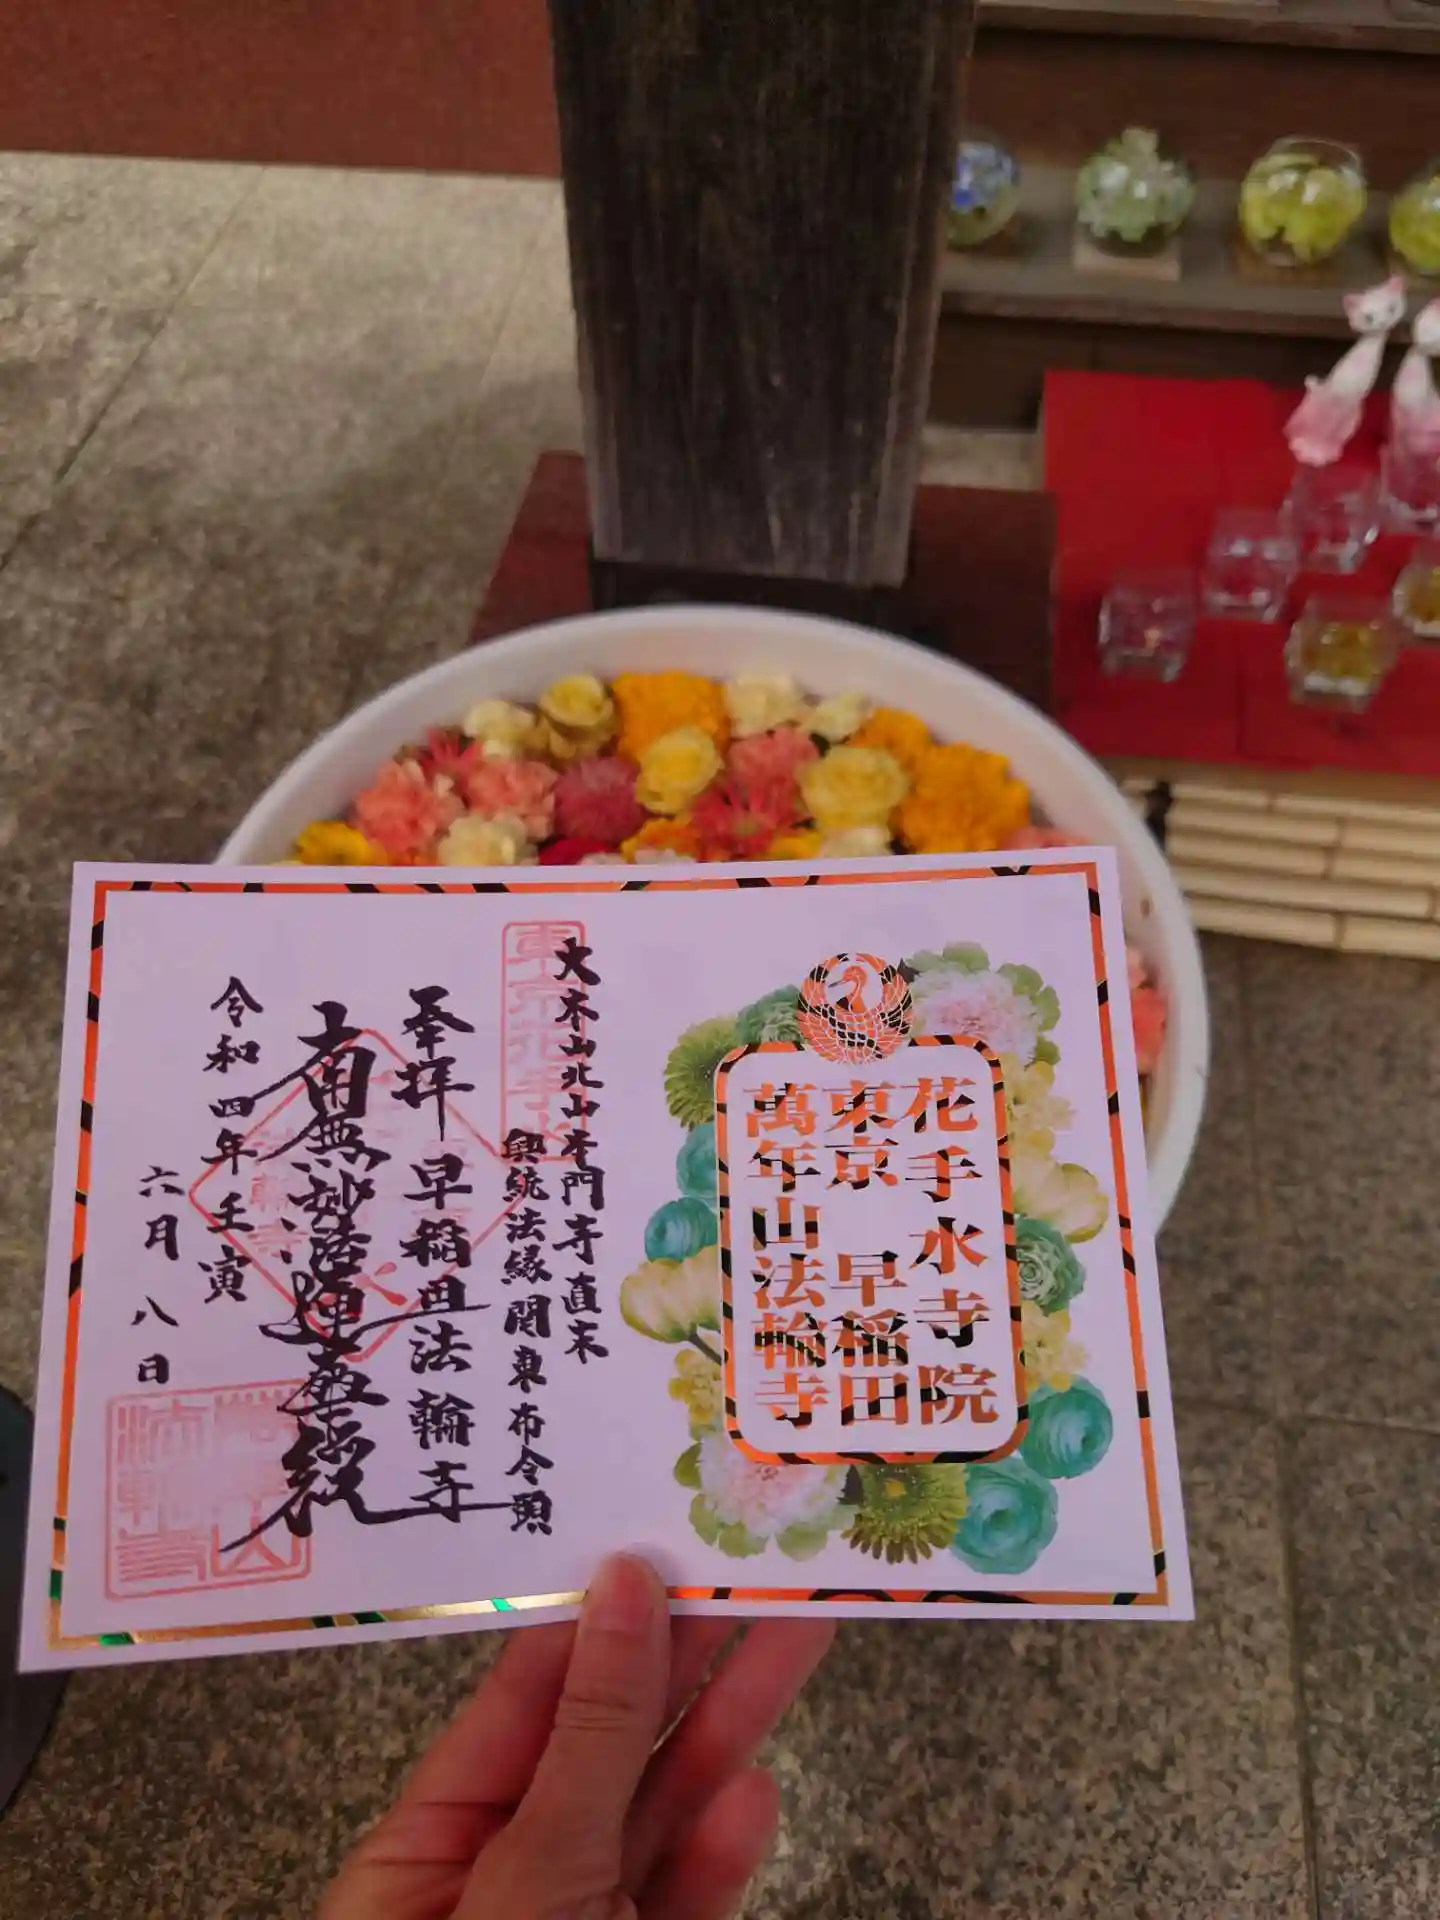 花手水寺院
東京 早稲田
萬年山法輪寺
大本山北山本門寺直末
興統法縁関東布令頭
東京花手水
奉拝 早稲田法輪寺
南無妙法蓮華経
令和四年壬寅
六月八日